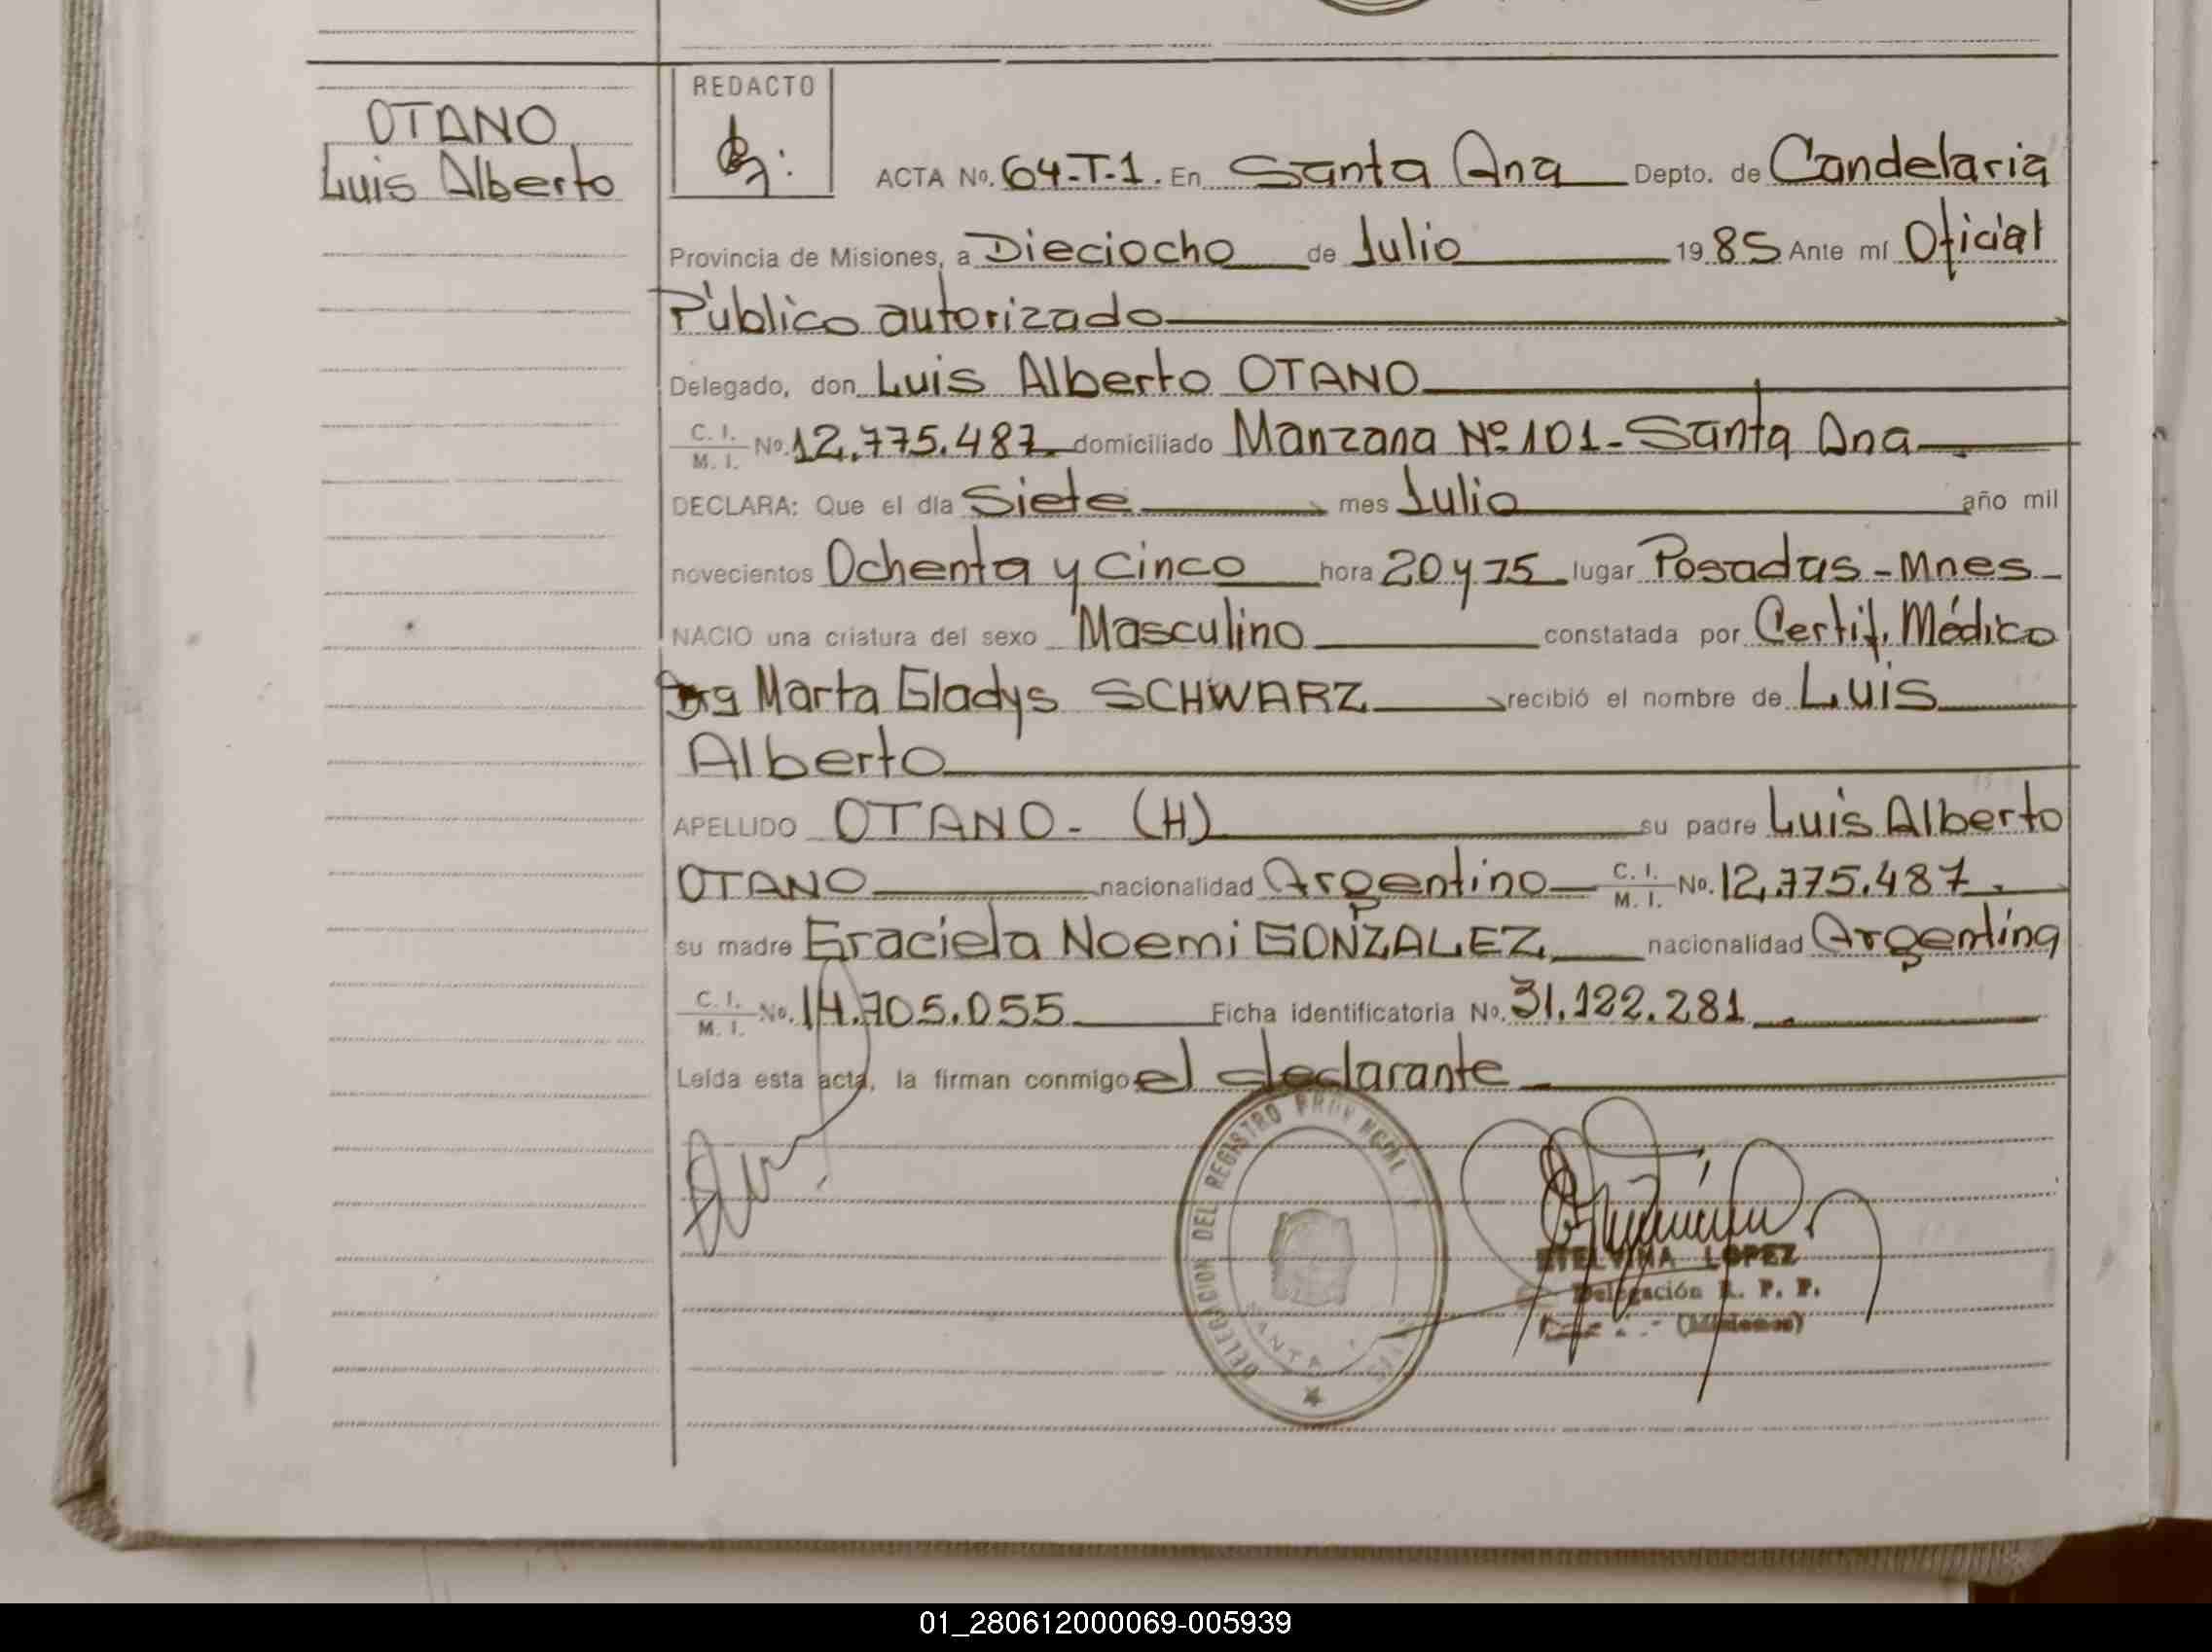 OTANO
Luis Alberto
REDACTO
ACTA No. 64-T-1. En Santa Ana Depto. de Candelaria
Provincia de Misiones, a Dieciocho de Julio 1985 Ante mí Oficial
Público autorizado
Delegado, don Luis Alberto OTANO
C. I. / M. I. No. 12.775.487. domiciliado Manzana Nº 101 - Santa Ana
DECLARA: Que el día Siete mes Julio año mil
novecientos Ochenta y Cinco hora 20 y 15 lugar Posadas - Mnes
NACIO una criatura del sexo Masculino constatada por Certif. Médico
Marta Gladys SCHWARZ recibió el nombre de Luis
Alberto
APELLIDO OTANO - (H) su padre Luis Alberto
OTANO nacionalidad Argentino C. I. / M. I. No. 12.775.487.
su madre Graciela Noemi GONZALEZ nacionalidad Argentina
C. I. / M. I. No. 14.705.055 Ficha identificatoria No. 31.122.281
Leída esta acta, la firman conmigo el declarante
DELEGACION DEL REGISTRO PROVINCIAL
SANTA
ETELVINA LOPEZ
Delegación R. P. P.
(Misiones)
01_280612000069-005939